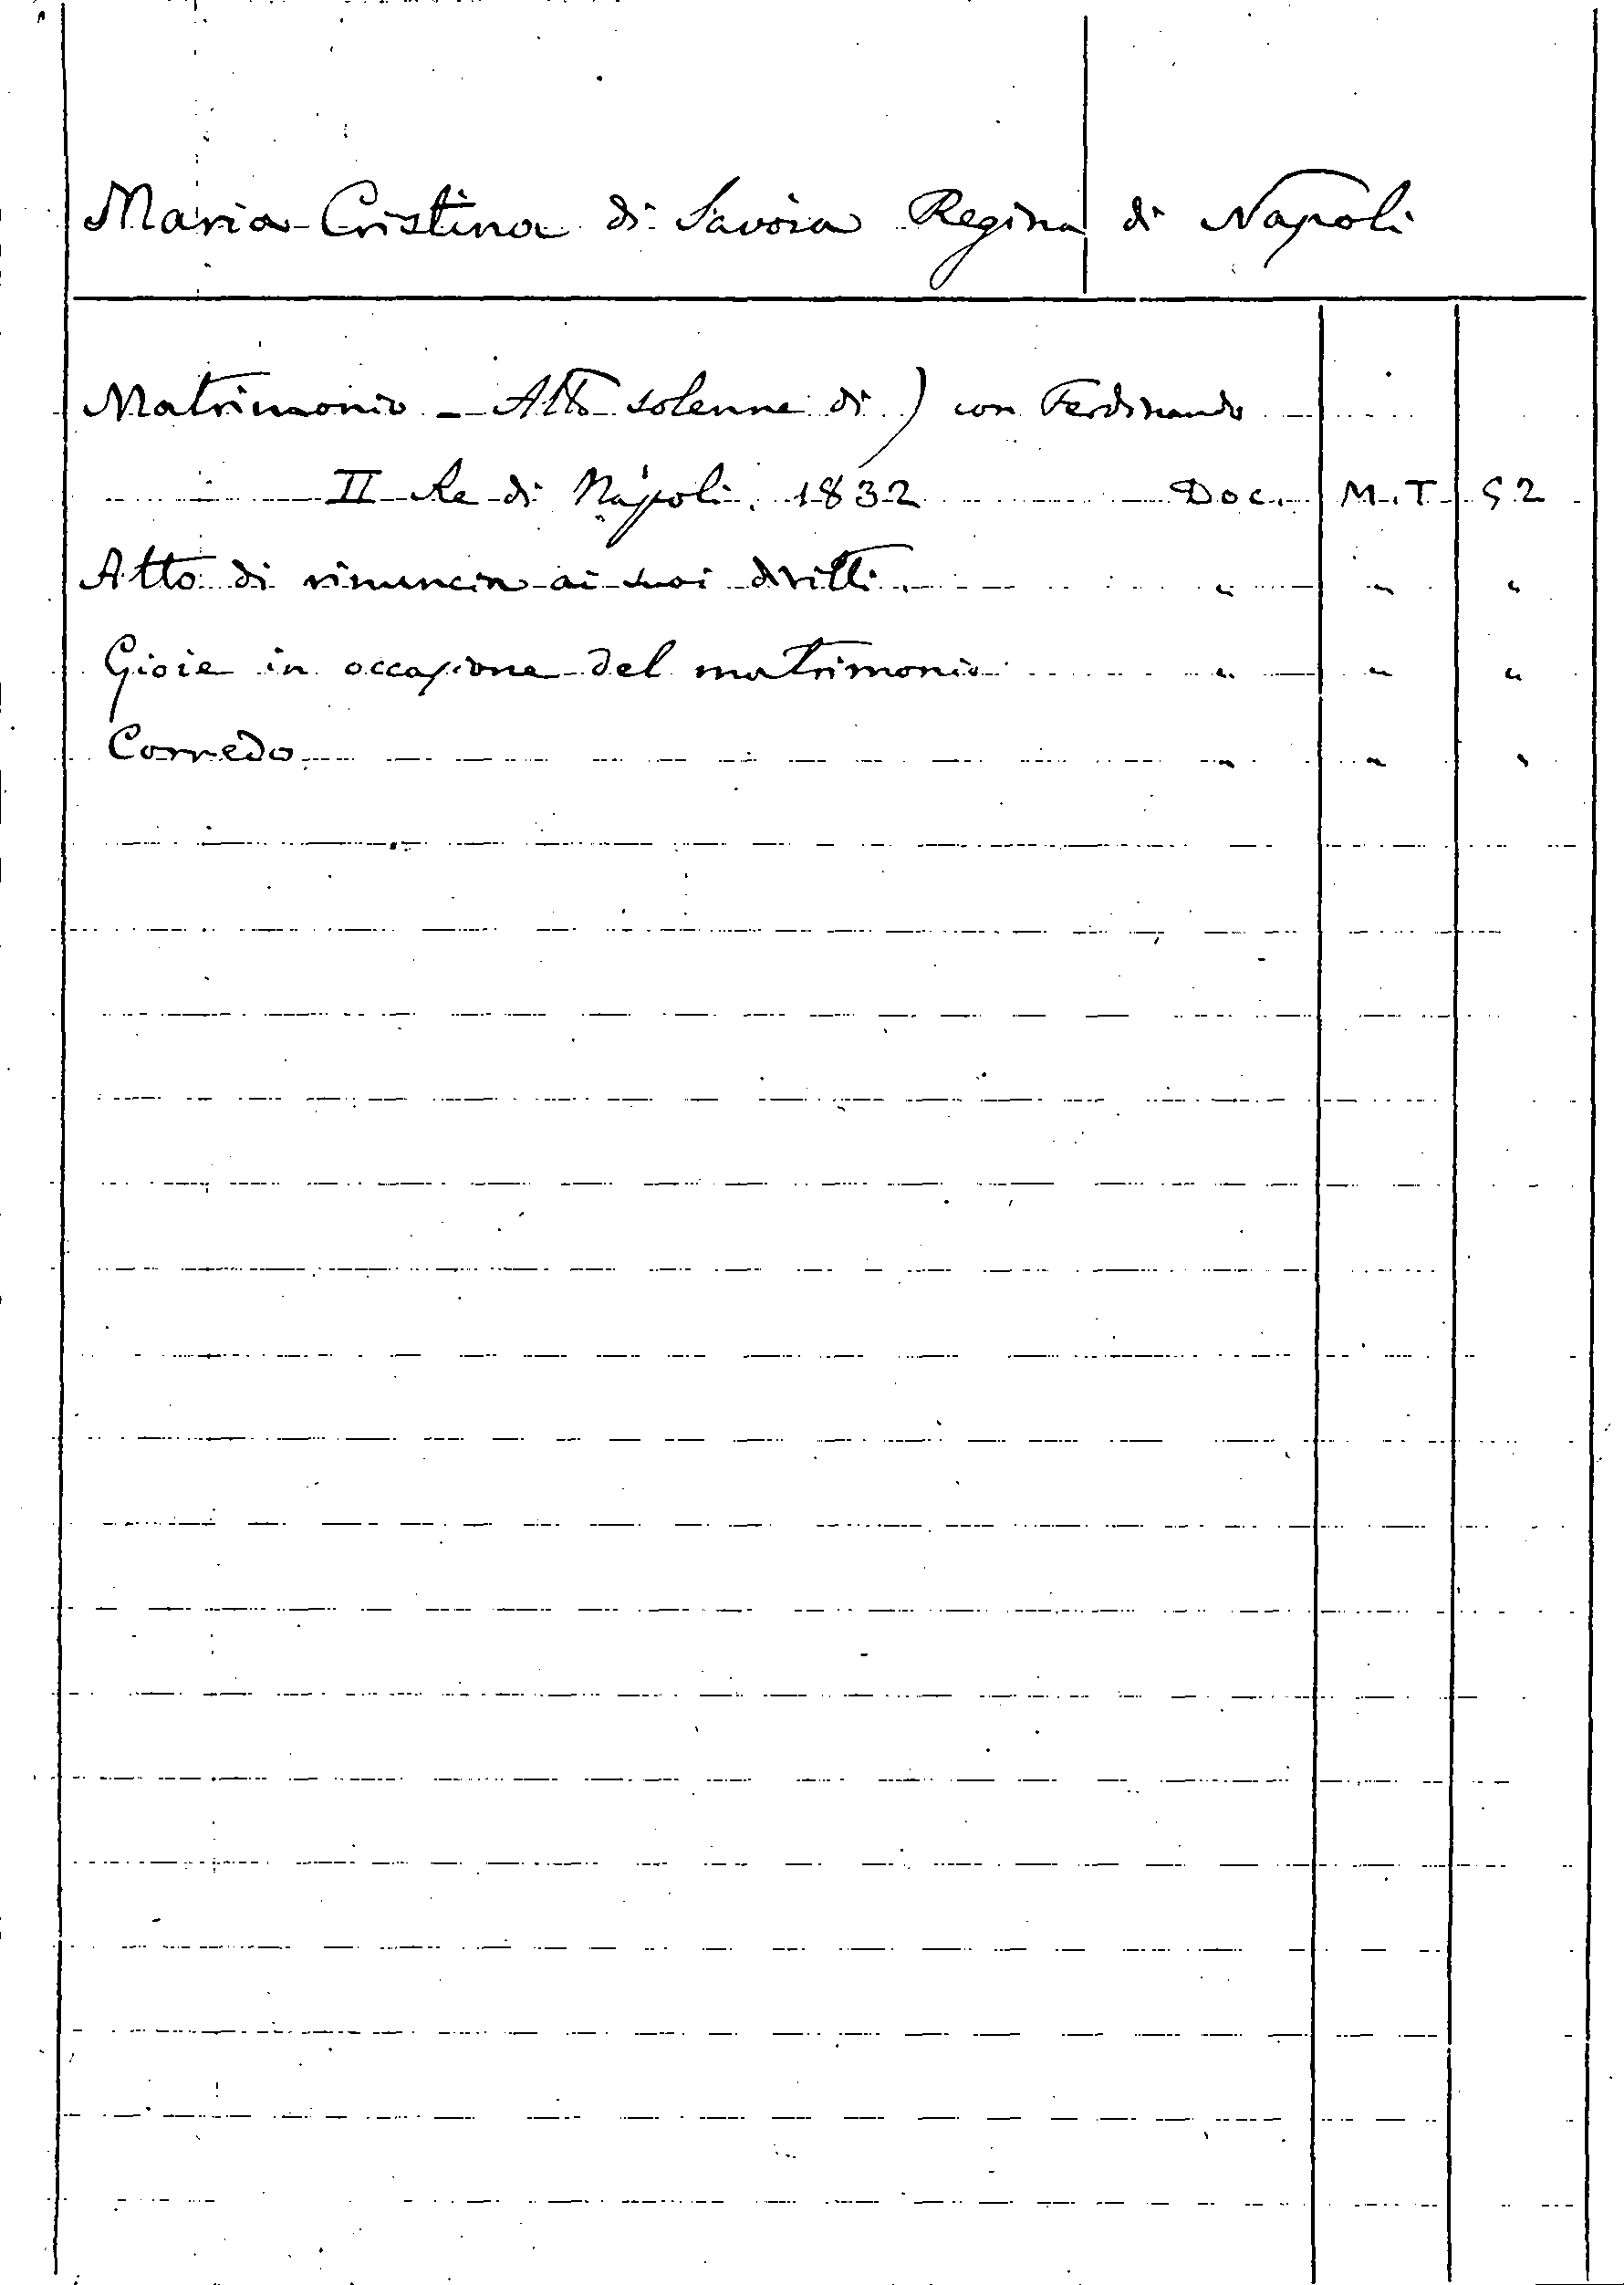 Maria Cristina di Savoia Regina di Napoli
Matrimonio - Atto solenne di) con Ferdinando
II Re di Napoli. 1832 Doc. M.T 52
Atto di rinuncia ai suoi diritti. " " "
Gioie in occasione del matrimonio " " "
Corredo " " "